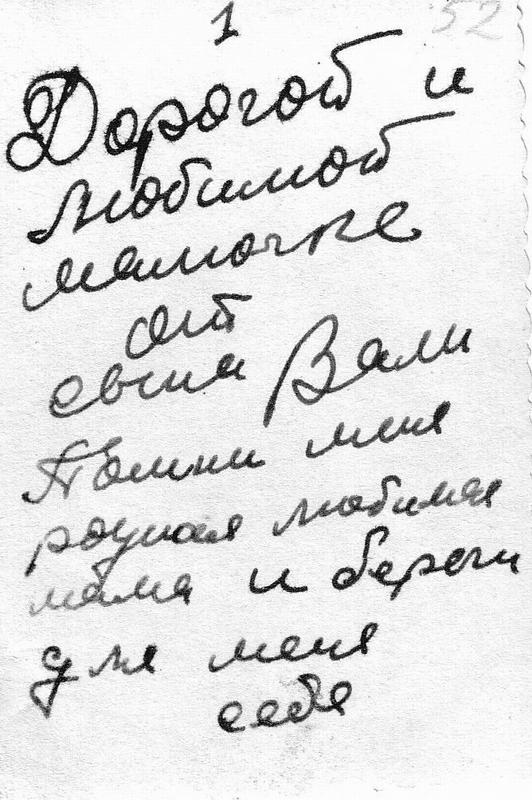 52
1
Дорогой и
любимой
мамочке
от
сына Вали
Помни меня
родная любимая
мама и береги
для меня
себя